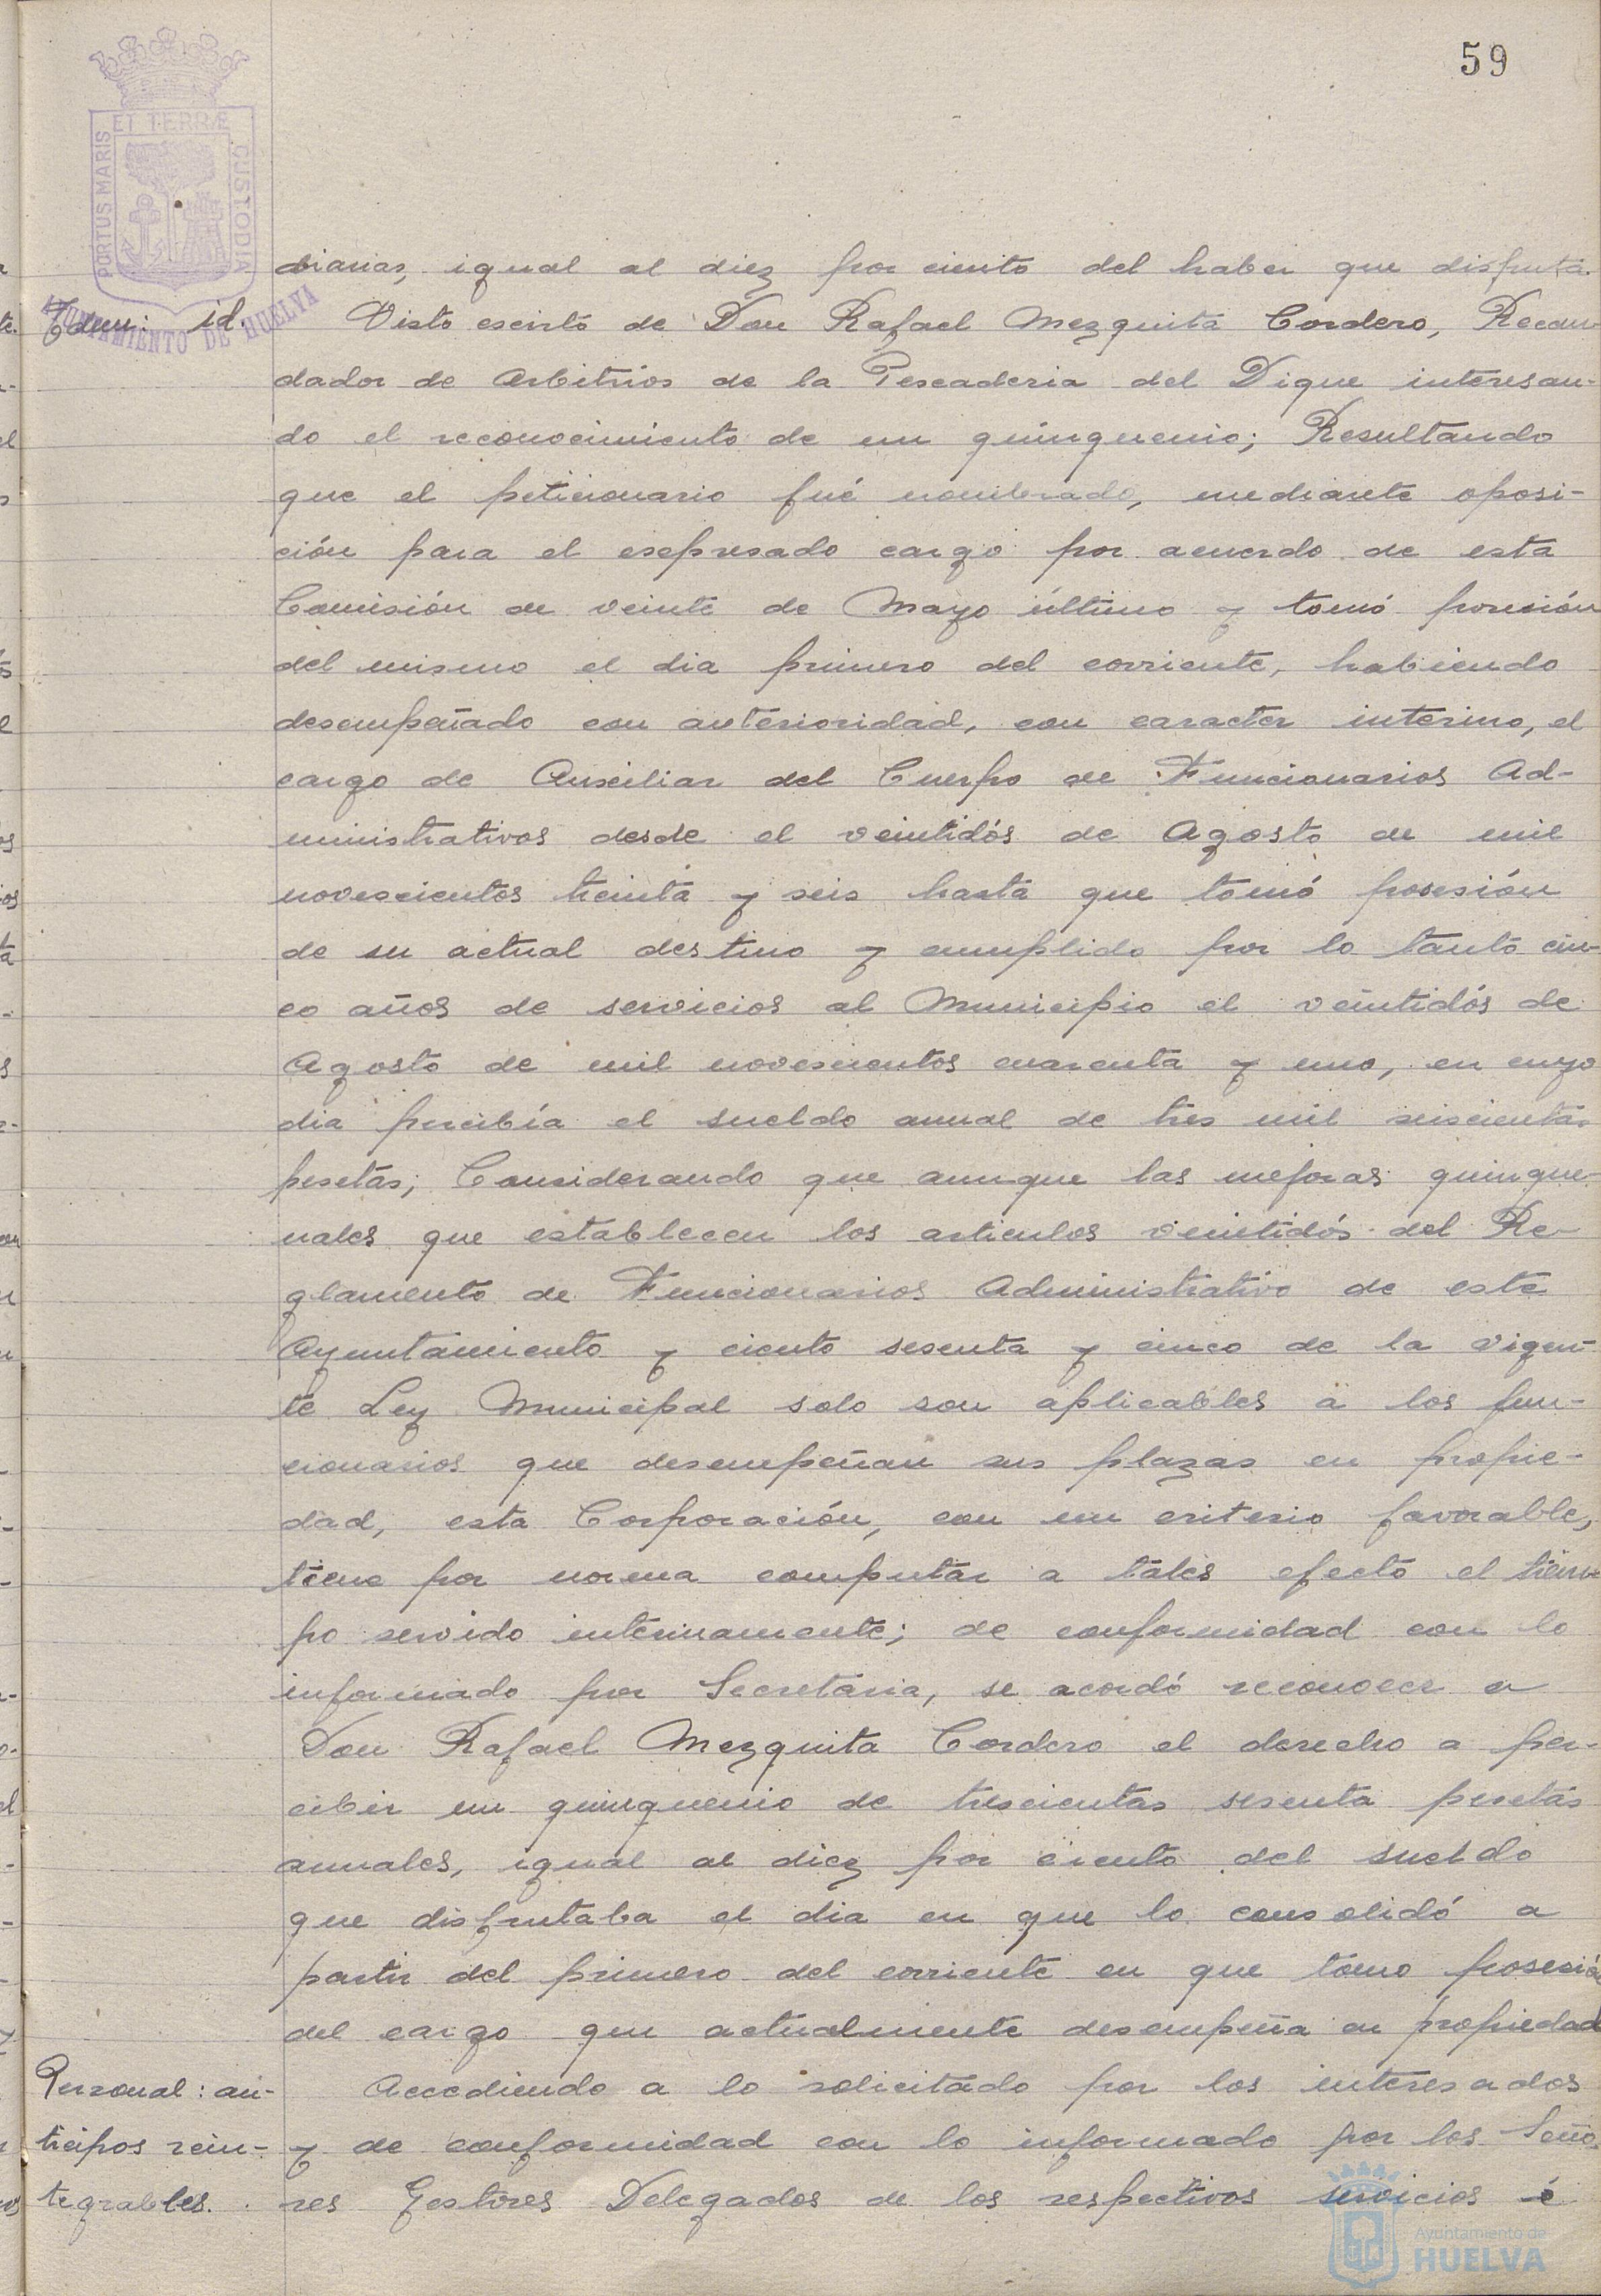 59
ET TERRÆ
PORTUS MARIS
CUSTODIA
AYUNTAMIENTO DE HUELVA
diarias, igual al diez por ciento del haber que disfruta.
Idem: id.
Visto escrito de Don Rafael Mezquita Cordero, Recau-
dador de Arbitrios de la Pescaderia del Dique interesan-
do el reconocimiento de un quinquenio; Resultando
que el peticionario fué nombrado, mediante oposi-
ción para el esepresado cargo por acuerdo de esta
Comisión de veinte de Mayo último y tomó posesión
del mismo el dia primero del corriente, habiendo
desempeñado con anterioridad, con caracter interino, el
cargo de Auxiliar del Cuerpo de Funcionarios Ad-
ministrativos desde el veintidós de Agosto de mil
novescientos treinta y seis hasta que tomó posesión
de su actual destino y cumplido por lo tanto cin-
co años de servicios al Municipio el veintidós de
Agosto de mil novescientos cuarenta y uno, en cuyo
dia percibía el sueldo anual de tres mil seiscientas
pesetas; Considerando que aunque las mejoras quinque-
nales que establecen los articulos veintidós del Re-
glamento de Funcionarios Administrativo de este
Ayuntamiento y ciento sesenta y cinco de la vigen-
te Ley Municipal solo son aplicables a los fun-
cionarios que desempeñan sus plazas en propie-
dad, esta Corporación, con un criterio favorable,
tiene por norma computar a tales efecto el tiem-
po servido interinamente; de conformidad con lo
informado por Secretaria, se acordó reconocer a
Don Rafael Mezquita Cordero el derecho a per-
cibir un quinquenio de trescientas sesenta pesetas
anuales, igual al diez por ciento del sueldo
que disfrutaba el dia en que lo consolidó a
partir del primero del corriente en que tomo posesión
del cargo que actualmente desempeña en propiedad
Personal: an-
ticipos rein-
tegrables.
Accediendo a lo solicitado por los interesados
y de conformidad con lo informado por los Seño-
res Gestores Delegados de los respectivos servicios é
Ayuntamiento de
HUELVA